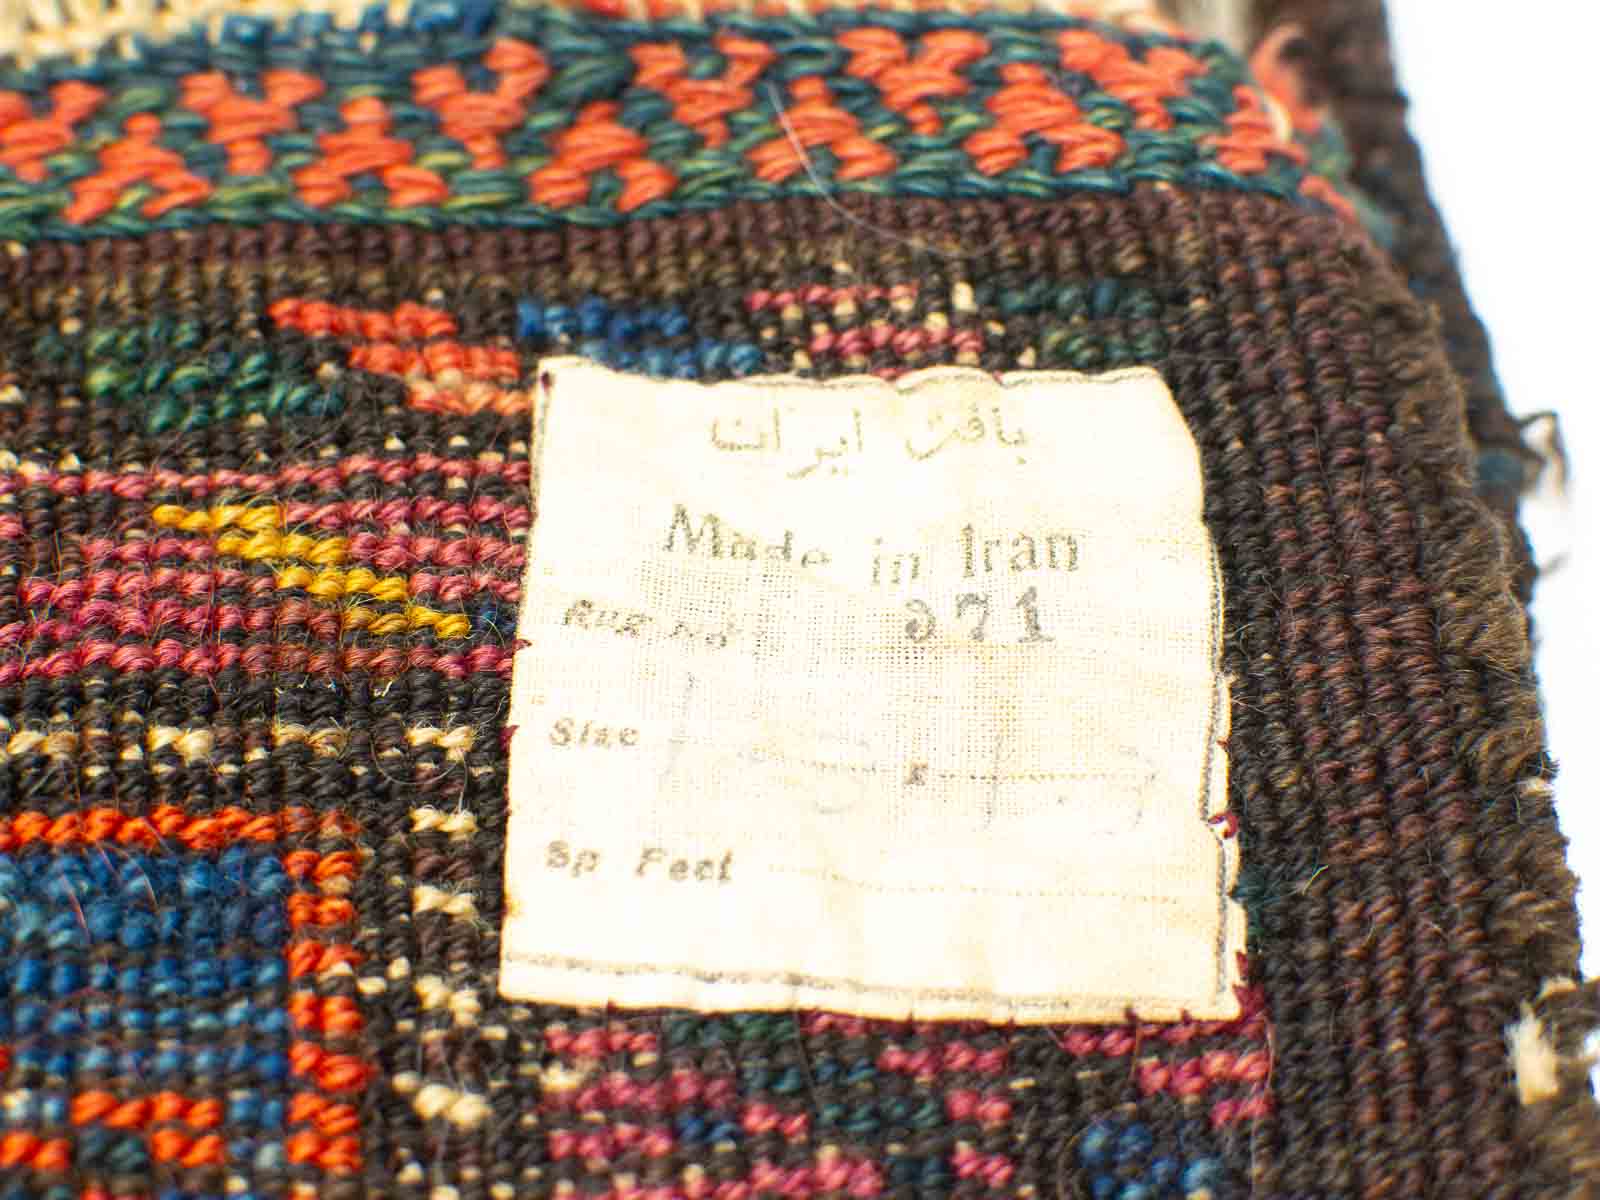 بافت ایران
Made in Iran
RUG No: 971
Size x
Sp Feet